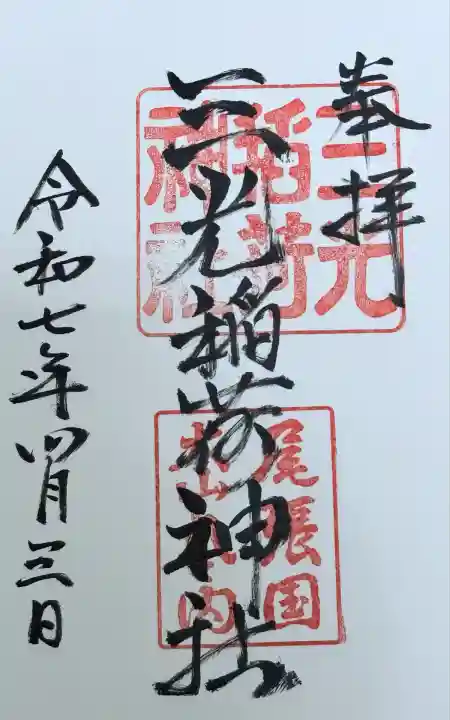 奉拝
三光稲荷神社
令和七年四月三日
三光
稲荷
神社
尾張国